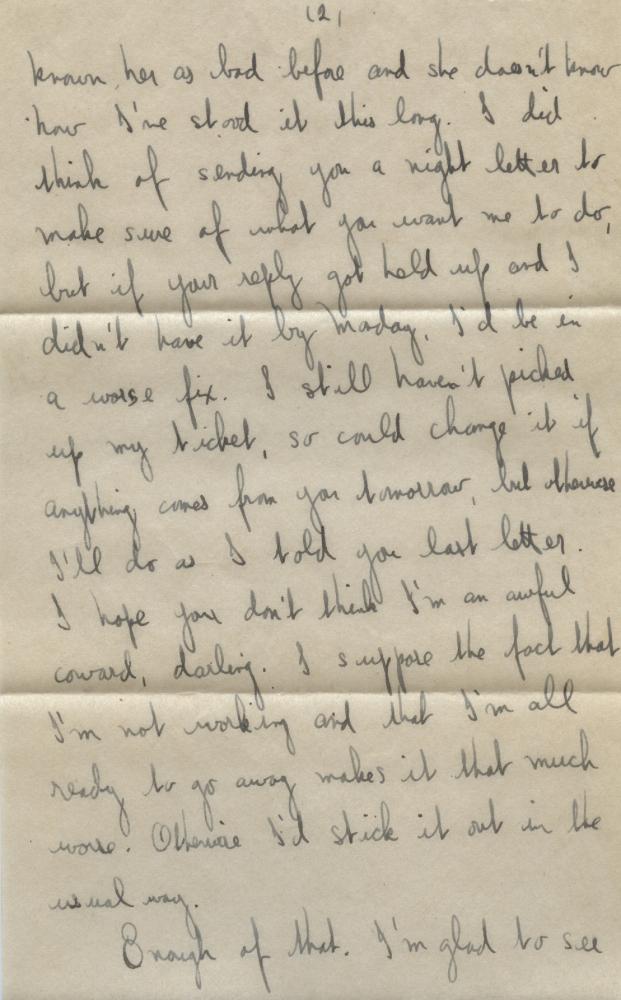 (2)
known her as bad before and she doesn't know
how I've stood it this long. I did
think of sending you a night letter to
make sure of what you want me to do,
but if your reply got held up and I
didn't have it by Monday, I'd be in
a worse fix. I still haven't picked
up my ticket, so could change it if
anything comes from you tomorrow, but otherwise
I'll do as I told you last letter.
I hope you don't think I'm an awful
coward, darling. I suppose the fact that
I'm not working and that I'm all
ready to go away makes it that much
worse. Otherwise I'd stick it out in the
usual way.
Enough of that. I'm glad to see